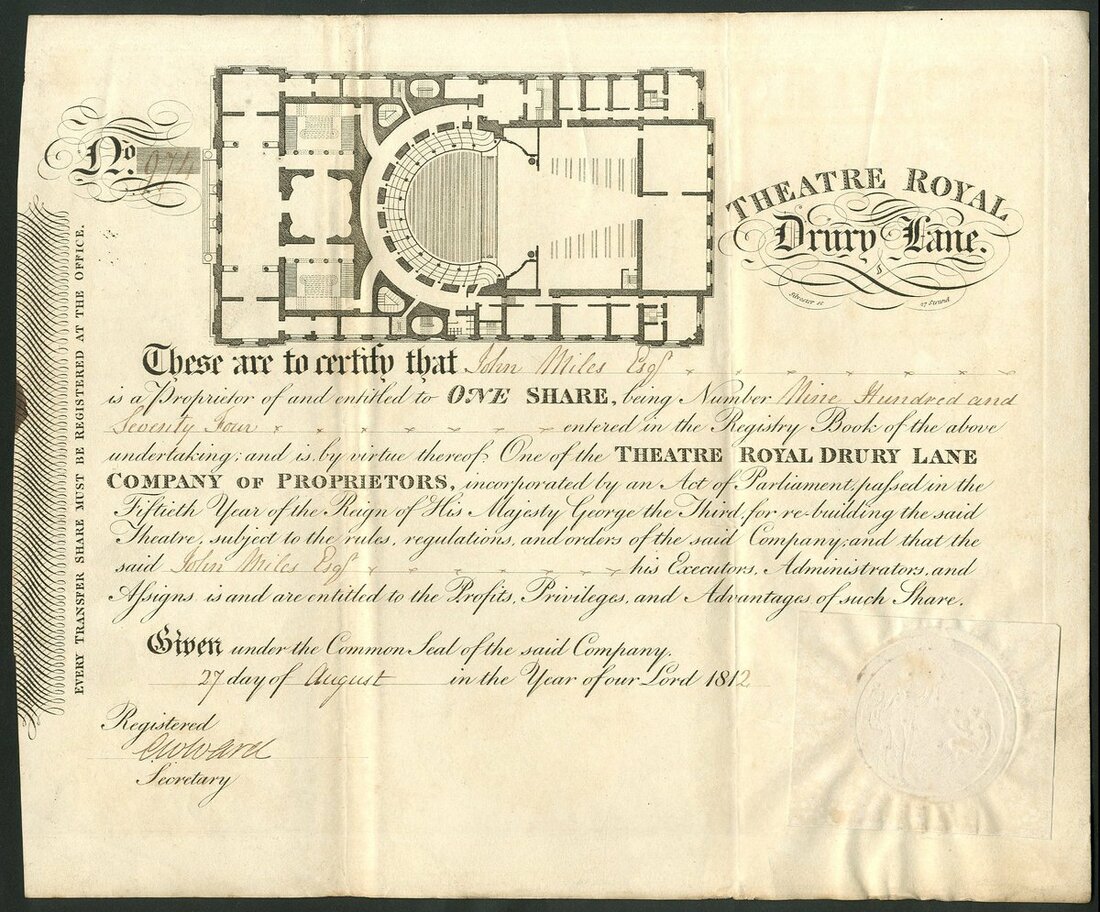 No. 974
THEATRE ROYAL
Drury Lane.
Silvester sc 27 Strand
EVERY TRANSFER SHARE MUST BE REGISTERED AT THE OFFICE.
These are to certify that John Miles Esqr
is a Proprietor of and entitled to ONE SHARE, being Number Nine Hundred and
Seventy Four entered in the Registry Book of the above
undertaking; and is by virtue thereof, One of the THEATRE ROYAL DRURY LANE
COMPANY OF PROPRIETORS, incorporated by an Act of Parliament, passed in the
Fiftieth Year of the Reign of His Majesty George the Third, for re-building the said
Theatre, subject to the rules, regulations, and orders of the said Company; and that the
said John Miles Esqr his Executors, Administrators, and
Assigns is and are entitled to the Profits, Privileges, and Advantages of such Share.
Given under the Common Seal of the said Company,
27 day of August in the Year of our Lord 1812
Registered
CWWard
Secretary